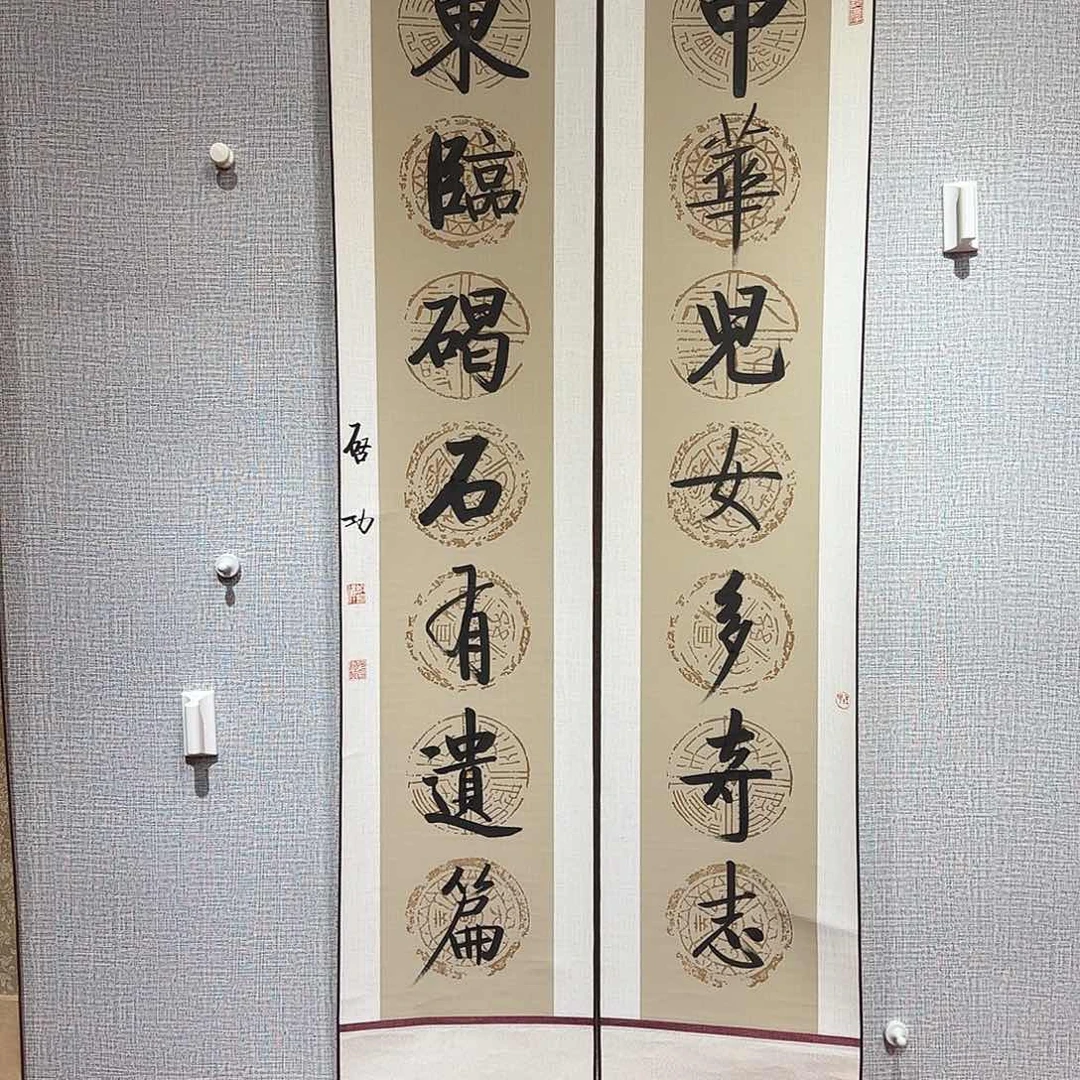 中華兒女多奇志
東臨碣石有遺篇
啓功